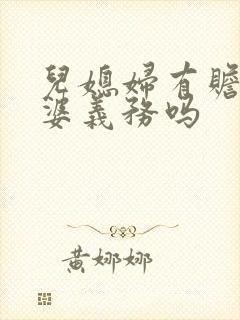 兒媳婦有贍
婆義務嗎
黃娜娜